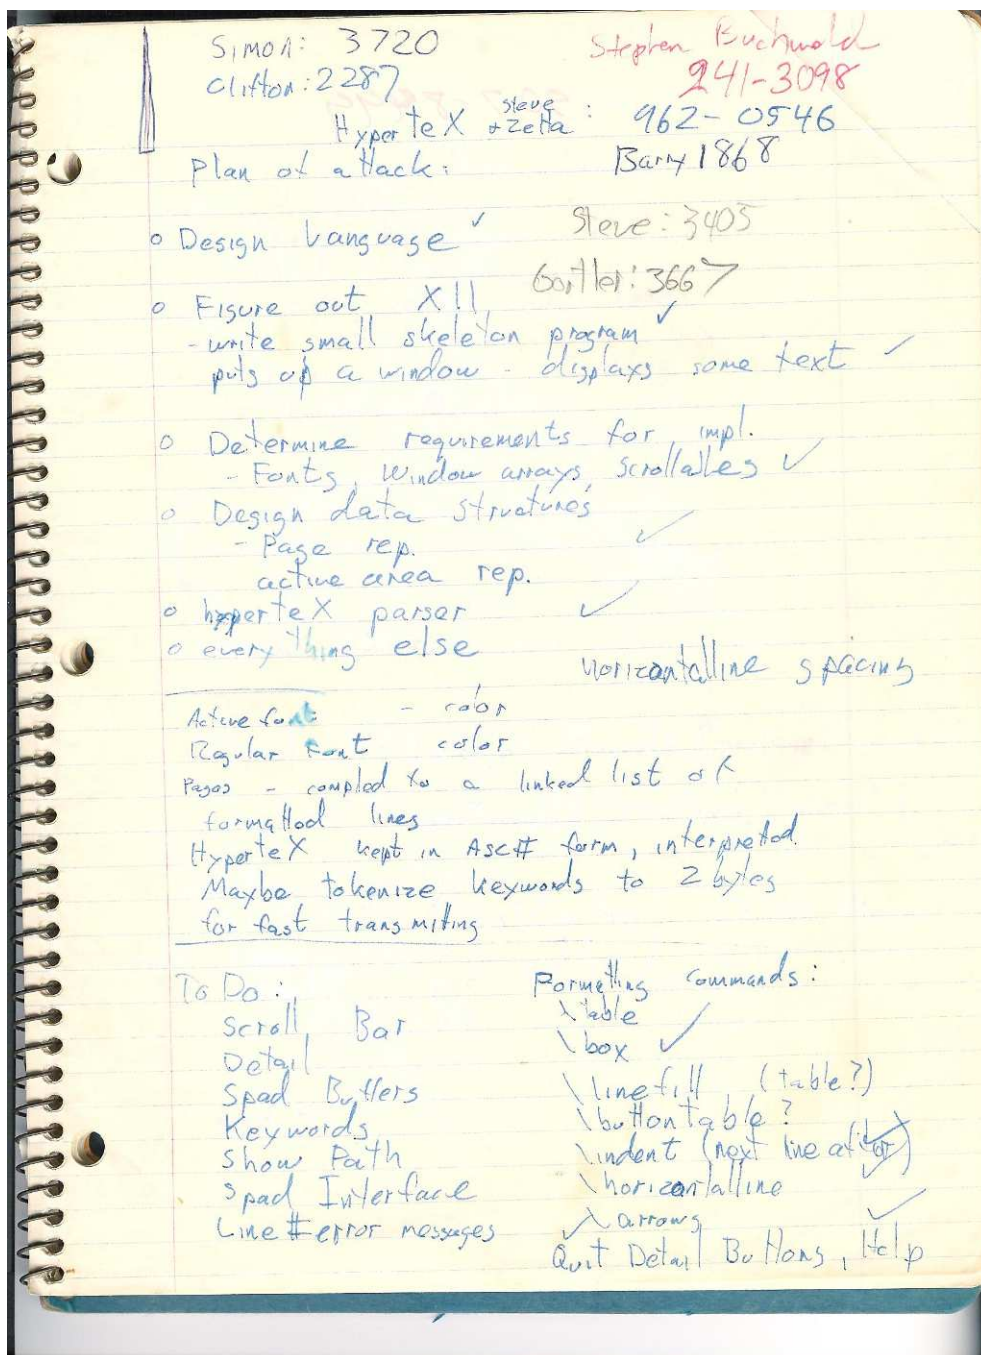 Simon: 3720
Stephen Buchwald
Clifton: 2287
241-3098
HyperTeX + Steve Zetta : 962-0546
Plan of attack:
Barry 1868
o Design Language ✓
Steve: 3405
Gortler: 3667
o Figure out X11
- write small skeleton program ✓
puts up a window - displays some text ✓
o Determine requirements for impl.
- Fonts, Window arrays, Scrollables ✓
o Design data structures
- Page rep. ✓
active area rep.
o hyperTeX parser ✓
o everything else
horizontalline spacing
Active font - color
Regular Font color
Pages - compled to a linked list of
formatted lines
HyperTeX kept in ASCII form, interpretted.
Maybe tokenize keywords to 2 bytes
for fast transmiting
To Do:
Scroll Bar
Detail
Spad Buffers
Keywords
Show Path
Spad Interface
Line # error messages
Formatting Commands:
\table
\box ✓
\linefill (table?)
\buttontable?
\indent (next line after) ✓
\horizontalline
✓ \arrows ✓
Quit Detail Buttons, Help